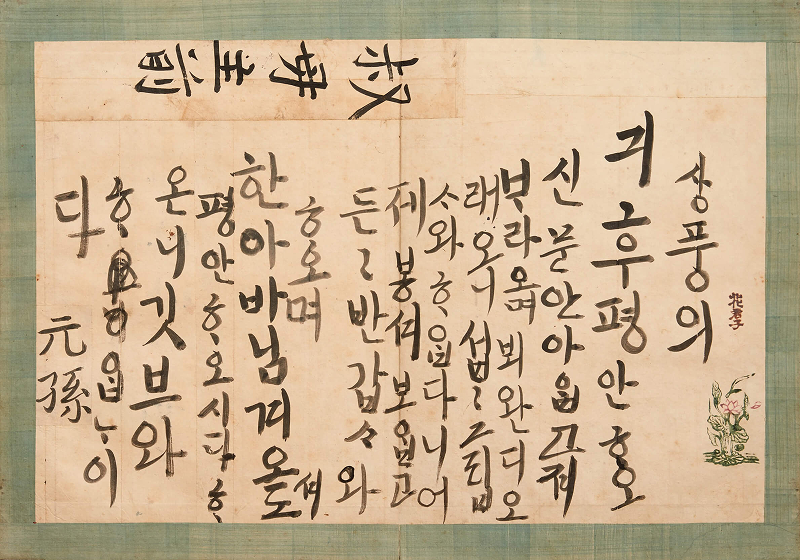 叔母主前
상풍의
긔후평안ᄒᆞ오
신문안아ᄋᆞᆸ고져
ᄇᆞ라오며뵈완디오
래오니섭〻그립
ᄉᆞ와ᄒᆞᄋᆞᆸ다니어
제봉셔보ᄋᆞᆸ고
든〻반갑ᄉᆞ와
ᄒᆞ오며
한아바님겨오셔도
평안ᄒᆞ오시다ᄒᆞ
온니깃브와
ᄒᆞᄋᆞᆸᄂᆞ이
다
元孫
花君子